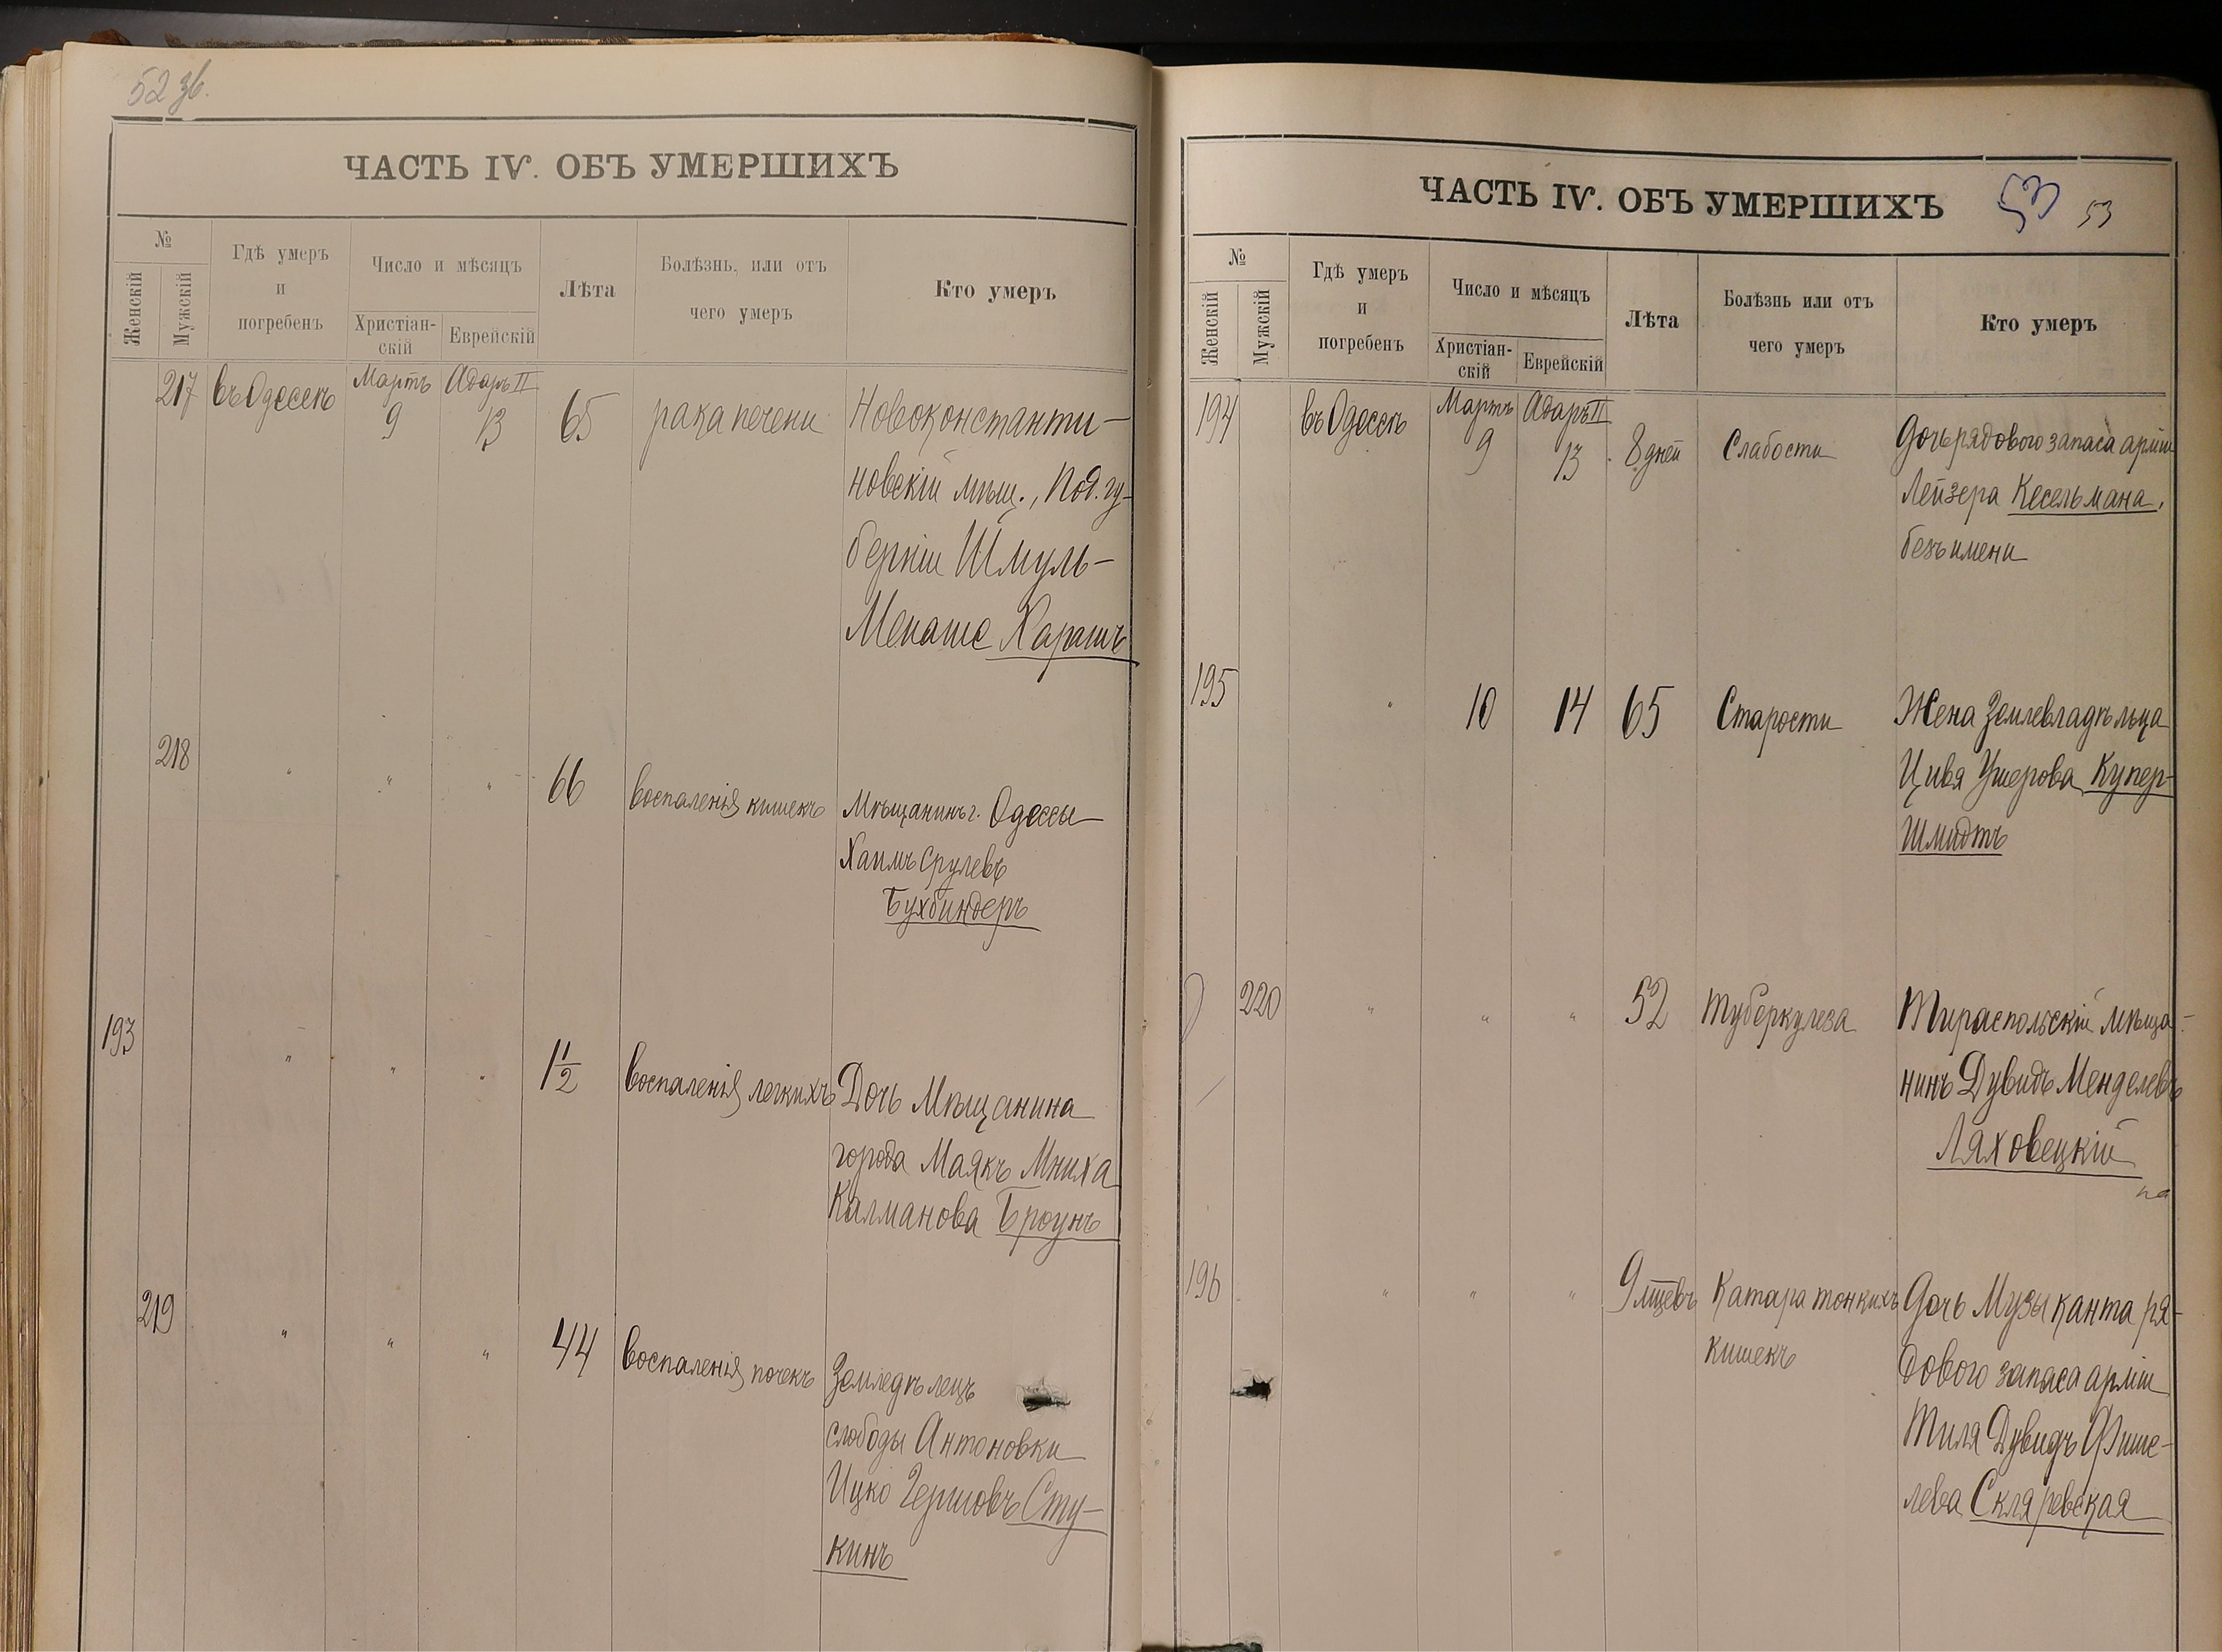 52 зв.
ЧАСТЬ IV. ОБЪ УМЕРШИХЪ
№
Женскій
Мужскій
Гдѣ умеръ
и
погребенъ
Число и мѣсяцъ
Христіан-
скій
Еврейскій
Лѣта
Болѣзнь, или отъ
чего умеръ
Кто умеръ
217 въ Одессѣ Мартъ 9 Адаръ II 13 65 рака печени Новоконстанти-
новскій мѣщ., Под. гу-
берніи Шмуль-
Менаше Харашъ
218 " " " 66 воспаленія кишекъ Мѣщанинъ г. Одессы
Хаимъ Срулевъ
Бухбиндеръ
193 " " " 1 1/2 воспаленія легкихъ Дочь Мѣщанина
города Маякъ Мниха
Калманова Броунъ
219 " " " 44 воспаленія почекъ Земледѣлецъ
слободы Антоновки
Ицко Гершовъ Сту-
кинъ
53 53
ЧАСТЬ IV. ОБЪ УМЕРШИХЪ
№
Женскій
Мужскій
Гдѣ умеръ
и
погребенъ
Число и мѣсяцъ
Христіан-
скій
Еврейскій
Лѣта
Болѣзнь или отъ
чего умеръ
Кто умеръ
194 въ Одессѣ Мартъ 9 Адаръ II 13 8 дней Слабости Дочь рядового запаса арміи
Лейзера Кесельмана,
безъ имени
195 " 10 14 65 Старости Жена Землевладѣльца
Цивя Ушерова Купер-
Шмидтъ
220 " " " 52 Туберкулеза Тираспольскій мѣща-
нинъ Дувидъ Менделевъ
Ляховецкій
на
196 " " " 9 мѣцевъ Катара тонкихъ Дочь Музыканта ря-
кишекъ дового запаса арміи
Тиля Дувидъ Фише-
лева Скляревская